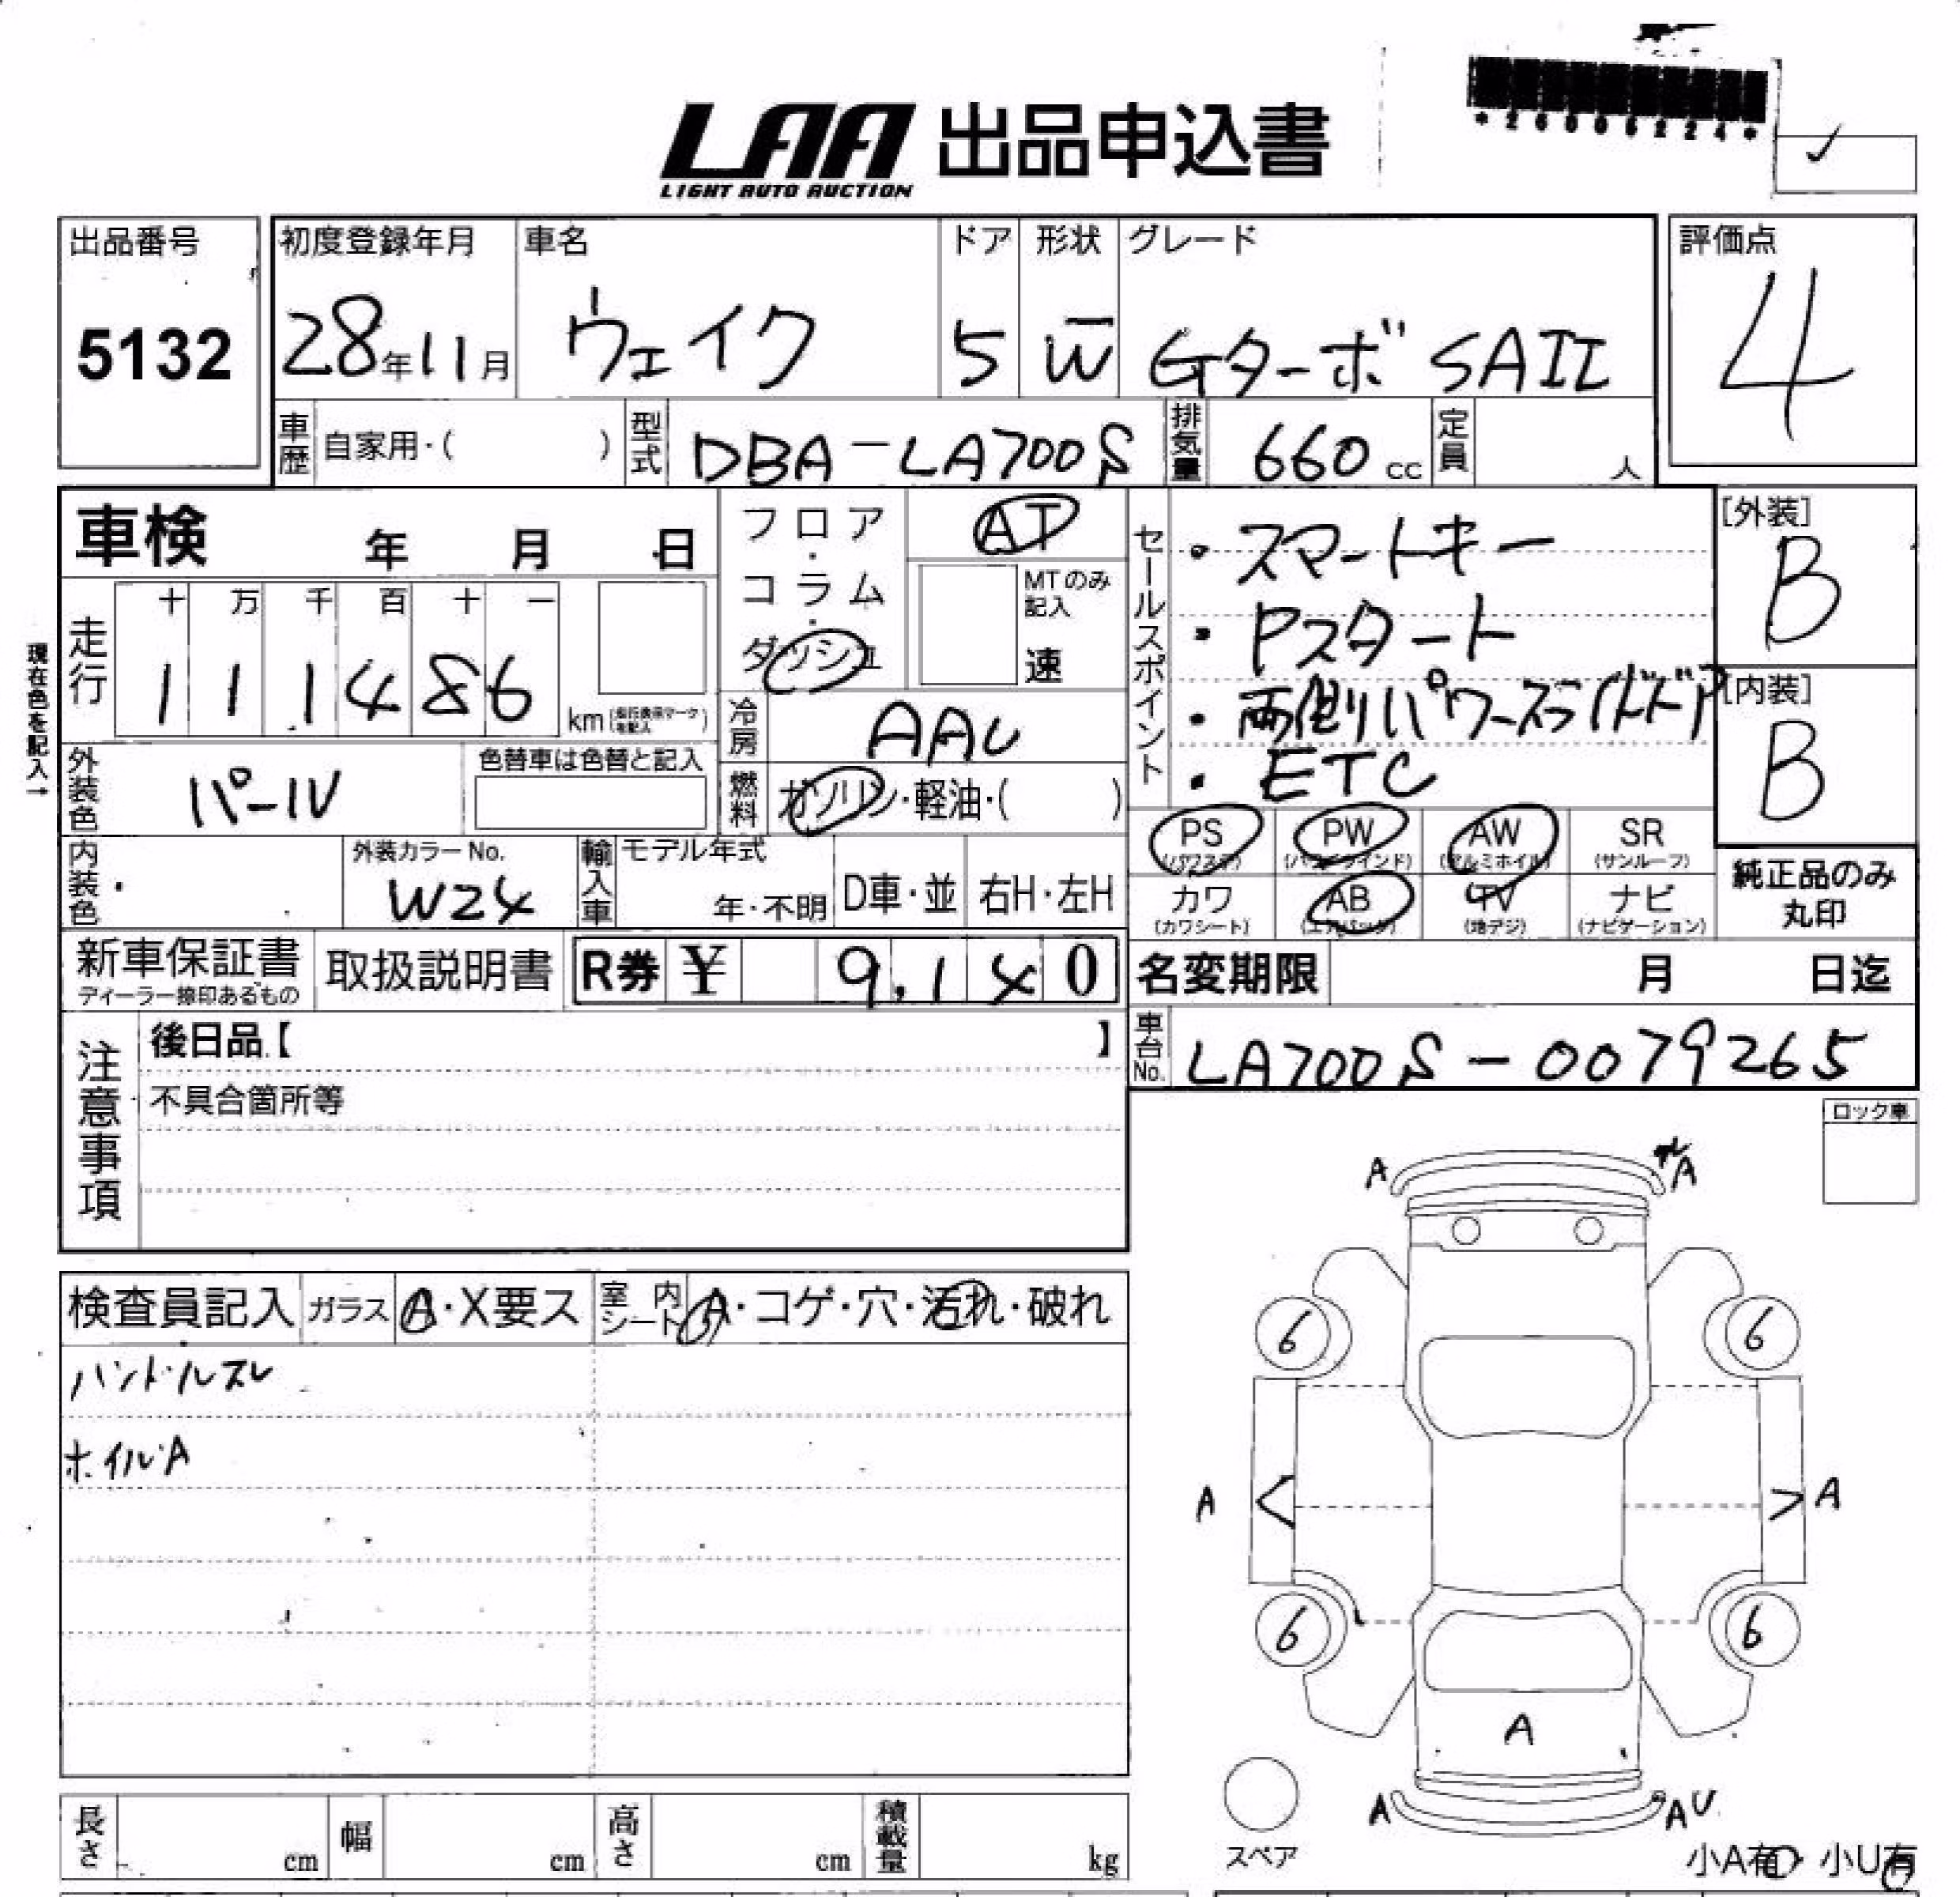 LAA 出品申込書
LIGHT AUTO AUCTION
*26006224*
出品番号
5132
初度登録年月
28年11月
車名
ウェイク
ドア
5
形状
W
グレード
Gターボ SAII
評価点
4
車歴 自家用・( )
型式 DBA-LA700S
排気量 660 cc
定員 人
車検 年 月 日
フロア・コラム・ダッシュ
AT
MTのみ記入
速
セールスポイント
・スマートキー
・Pスタート
・両側パワースライドドア
・ETC
[外装]
B
[内装]
B
現在色を記入→
走行
十 万 千 百 十 一
1 1 1 4 8 6
km(走行表示マークを記入)
冷房 AAC
燃料 ガソリン・軽油・( )
外装色 パール
色替車は色替と記入
PS (パワステ)
PW (パワーウインド)
AW (アルミホイル)
SR (サンルーフ)
カワ (カワシート)
AB (エアバッグ)
TV (地デジ)
ナビ (ナビゲーション)
純正品のみ
丸印
内装色
外装カラーNo.
W24
輸入車 モデル年式
年・不明
D車・並
右H・左H
新車保証書
ディーラー捺印あるもの
取扱説明書
R券 ¥ 9,140
名変期限 月 日迄
車台No. LA700S-0079265
注意事項
後日品【 】
不具合箇所等
ロック車
検査員記入
ガラス A・X要ス
室内シート A・コゲ・穴・汚れ・破れ
ハンドルスレ
ホイルA
A
A
6
6
A
A
6
6
A
A
AU
スペア
小A有・小U有
長さ cm
幅 cm
高さ cm
積載量 kg